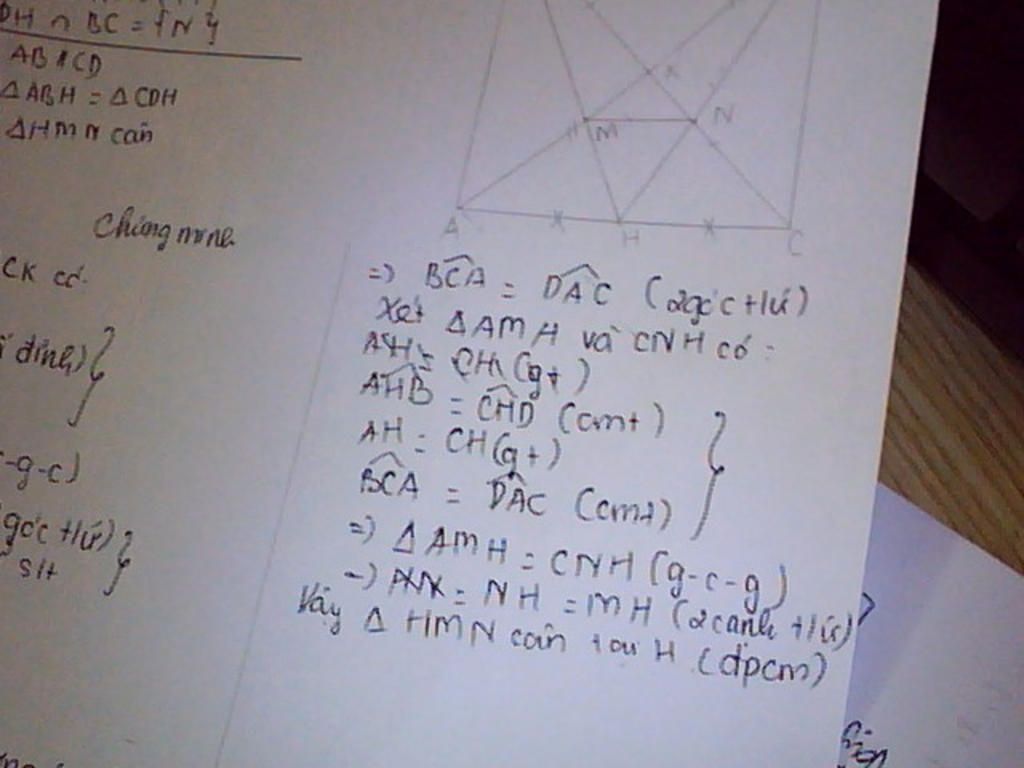 DH ∩ BC = {N}
AB // CD
Δ ABH = Δ CDH
ΔHMN cân
Chứng minh
CK có
đỉnh)}
-g-c)
góc t/ứ)}
slt
A
H
C
M
N
K
=) BCA = DAC (2góc t/ứ)
Xét ΔAMH và CNH có :
CH (gt)
AHB = CHD (cmt)
AH = CH(gt)
BCA = DAC (cmt)
=) Δ AMH = CNH (g-c-g)
=) NH = MH (2cạnh t/ứ)
Vậy Δ HMN cân tại H (đpcm)